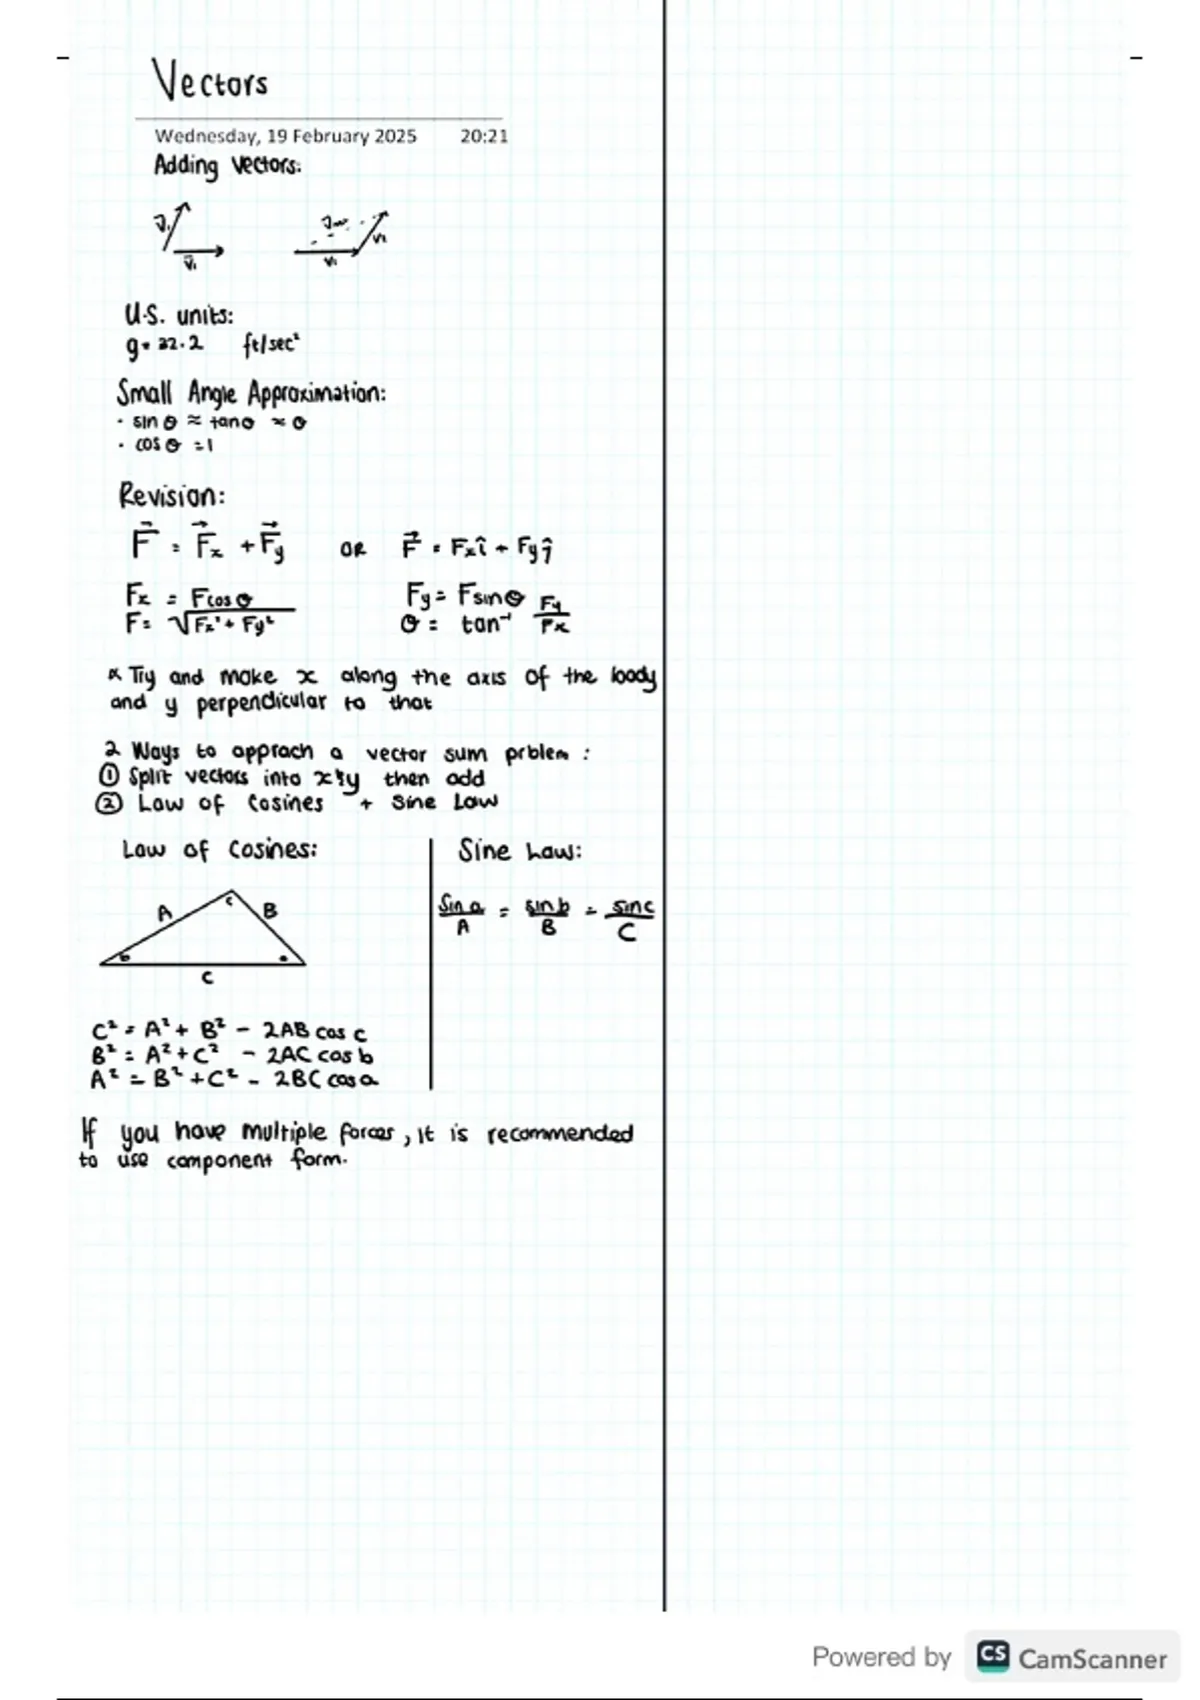 Vectors
Wednesday, 19 February 2025 20:21
Adding Vectors:
V₁
V₁ V₁
U.S. units:
g = 32.2 ft/sec²
Small Angle Approximation:
• sin θ ≈ tan θ ≈ θ
• cos θ = 1
Revision:
F⃗ = F⃗x + F⃗y OR F⃗ = Fxî + Fyĵ
Fx = Fcos θ Fy = Fsinθ
F = √Fx² + Fy² θ = tan⁻¹ Fy/Fx
* Try and make x along the axis of the body
and y perpendicular to that
2 Ways to opprach a vector sum prblem :
① Split vectors into x & y then add
② Law of Cosines + Sine Law
Law of Cosines: Sine Law:
A c B
sin a / A = sin b / B = sin c / C
b a
C
C² = A² + B² - 2AB cos c
B² = A² + C² - 2AC cos b
A² = B² + C² - 2BC cos a
If you have multiple forces, it is recommended
to use component form.
Powered by CS CamScanner